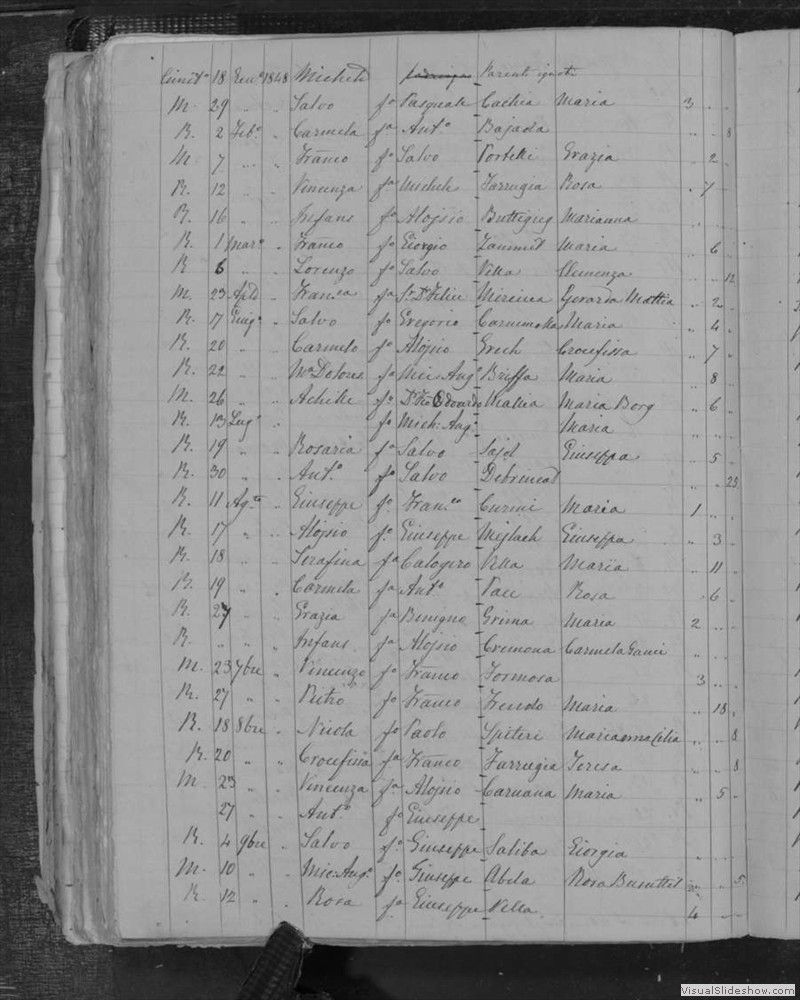 Cimit.o 18 Gen.o 1848 Michele Parenti ignoti
M. 29 " " Salvo fo Pasquale Cachia Maria 3 " "
R. 2 Feb.o " Carmela fa Ant.o Bajada " " 8
M. 7 " " Franco fo Salvo Portelli Grazia " 2 "
R. 12 " " Vincenza fa Michele Farrugia Rosa " 7 "
R. 16 " " Infans fa Alojsio Buttigieg Marianna " " "
R. 1 Mar.o " Franco fo Giorgio Zammit Maria " 6 "
R. 6 " " Lorenzo fo Salvo Vella Clemenza " " 12
M. 23 Aple " Fran.ca fa Sr. Dr. Felice Gerarda Mattia " 2 "
R. 17 Giug.o " Salvo fo Gregorio Maria " 4 "
R. 20 " " Carmelo fo Alojsio Grech Crocefissa " 7 "
R. 22 " " Ma Dolores fa Mic: Ang.o Briffa Maria " 8 "
M. 26 " " Achille fo Edoardo Mattia Maria Borg " 6 "
R. 13 Lug.o " fo Mich: Ang.o Maria " " "
R. 19 " " Rosaria fa Salvo Sajd Giuseppa " 5 "
R. 30 " " Ant.o fo Salvo Debrincat " " 23
R. 11 Ag.to " Giuseppe fo Fran.co Curmi Maria 1 " "
R. 17 " " Alojsio fo Giuseppe Mejlach Giuseppa " 3 "
R. 18 " " Serafina fa Calogero Vella Maria " 11 "
R. 19 " " Carmela fa Ant.o Pace Rosa " 6 "
R. 27 " " Grazia fa Benigno Grima Maria 2 " "
R. " " " Infans fa Alojsio Cremona Carmela Gauci " " "
M. 23 7bre " Vincenzo fo Franco Formosa 3 " "
R. 27 " " Pietro fo Franco Frendo Maria " 18 "
R. 18 8bre " Nicola fo Paolo Spiteri " " 8
R. 20 " " Crocefissa fa Franco Farrugia Teresa " " 8
M. 23 " " Vincenza fa Alojsio Caruana Maria " 5 "
27 " " Ant.o fo Giuseppe
R. 4 9bre " Salvo fo Giuseppe Saliba Giorgia " " "
M. 10 " " Mic: Ang.o fo Giuseppe Abela Rosa Busuttil " " 5
R. 12 " " Rosa fa Giuseppe Vella 4 " "
VisualSlideshow.com